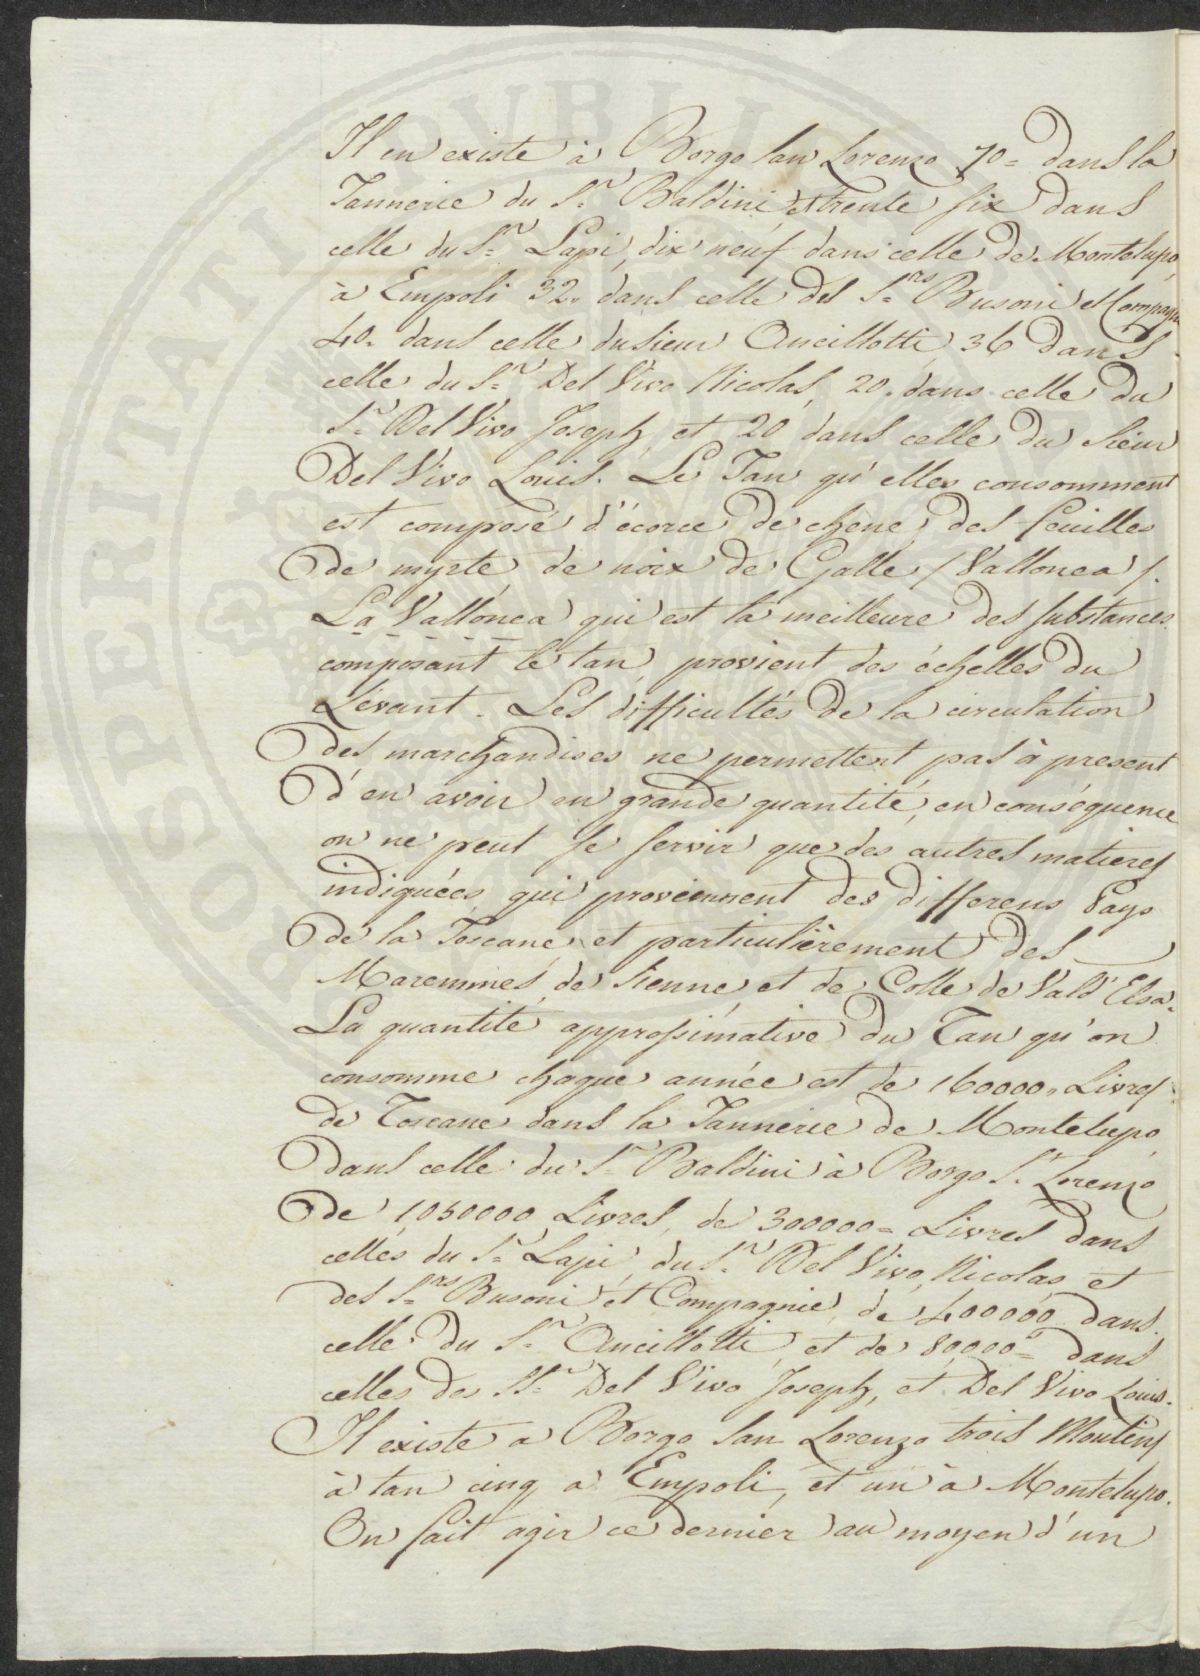 Il en existe à Borgo San Lorenzo 70= dans la
Tannerie du S.r Baldini et trente six dans
celle du S.r Lapi, dix neuf dans celle de Montelupo,
à Empoli 32. dans celle des S.rs Busoni et Compag.
40. dans celle du sieur Ancillotti, 36 dans
celle du S.r Del Vivo Nicolas, 20. dans celle du
S.r Del Vivo Joseph, et 20 dans celle du Sieur
Del Vivo Louis. Le Tan qu'elles consomment
est composé d'écorce de chêne, des feuilles
de myrte, de noix de Galle / Vallonea /.
La Vallonea qui est la meilleure des substances
composant le tan, provient des échelles du
Levant. Les difficultés de la circulation
des marchandises ne permettent pas à present
d'en avoir en grande quantité, en conséquence
on ne peut se servir que des autres matieres
indiquées, qui proviennent des differens Pays
de la Toscane, et particulièrement des
Maremmes, de Sienne, et de Colle de Vald'Elsa.
La quantité approssimative du Tan qu'on
consomme chaque année est de 160000. Livres
de Toscane dans la Tannerie de Montelupo,
dans celle du S.r Baldini à Borgo S. Lorenzo
de 1050000 Livres, de 300000= Livres dans
celles du S.r Lapi du S.r Del Vivo Nicolas et
des S.rs Busoni et Compagnie, de 400000 dans
celle du S.r Ancillotti, et de 80000= dans
celles des SS.r Del Vivo Joseph, et Del Vivo Louis.
Il existe a Borgo San Lorenzo trois Moulins
à tan cinq a Empoli, et un à Montelupo.
On fait agir ce dernier au moyen d'un
PROSPERITATI PUBLI